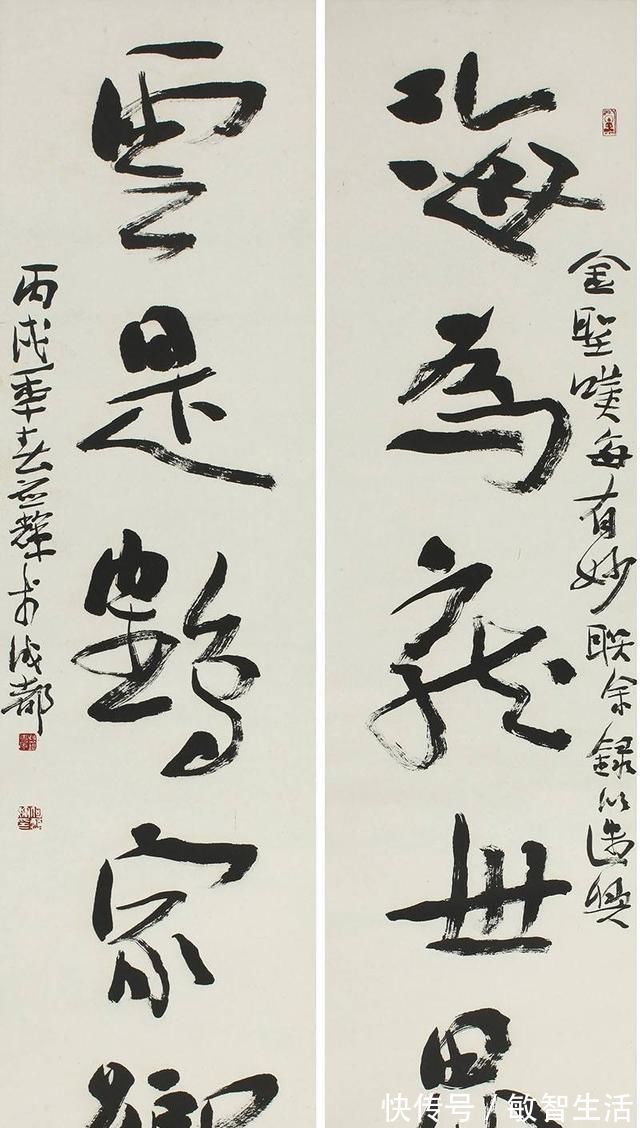 海為龍世界
金聖嘆每有妙聯余録以遣興
雲是鶴家鄉
丙戌季春芸輝於成都
快传号/敏智生活